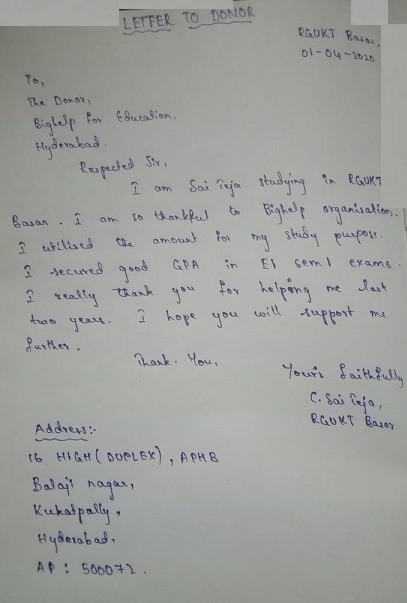 LETTER TO DONOR
RGUKT Basar,
01-04-2020
To,
The Donor,
Bighelp for Education.
Hyderabad.
Respected Sir,
I am Sai Teja studying in RGUKT
Basar. I am so thankful to Bighelp organisation.
I utilised the amount for my study purpose.
I secured good GPA in E1 sem1 exams.
I really thank you for helping me last
two years. I hope you will support me
further.
Thank. You,
Yours faithfully
C. Sai Teja,
RGUKT Basar
Address:-
16 HIGH (DUPLEX), APHB
Balaji nagar,
Kukatpally,
Hyderabad,
AP : 500072.